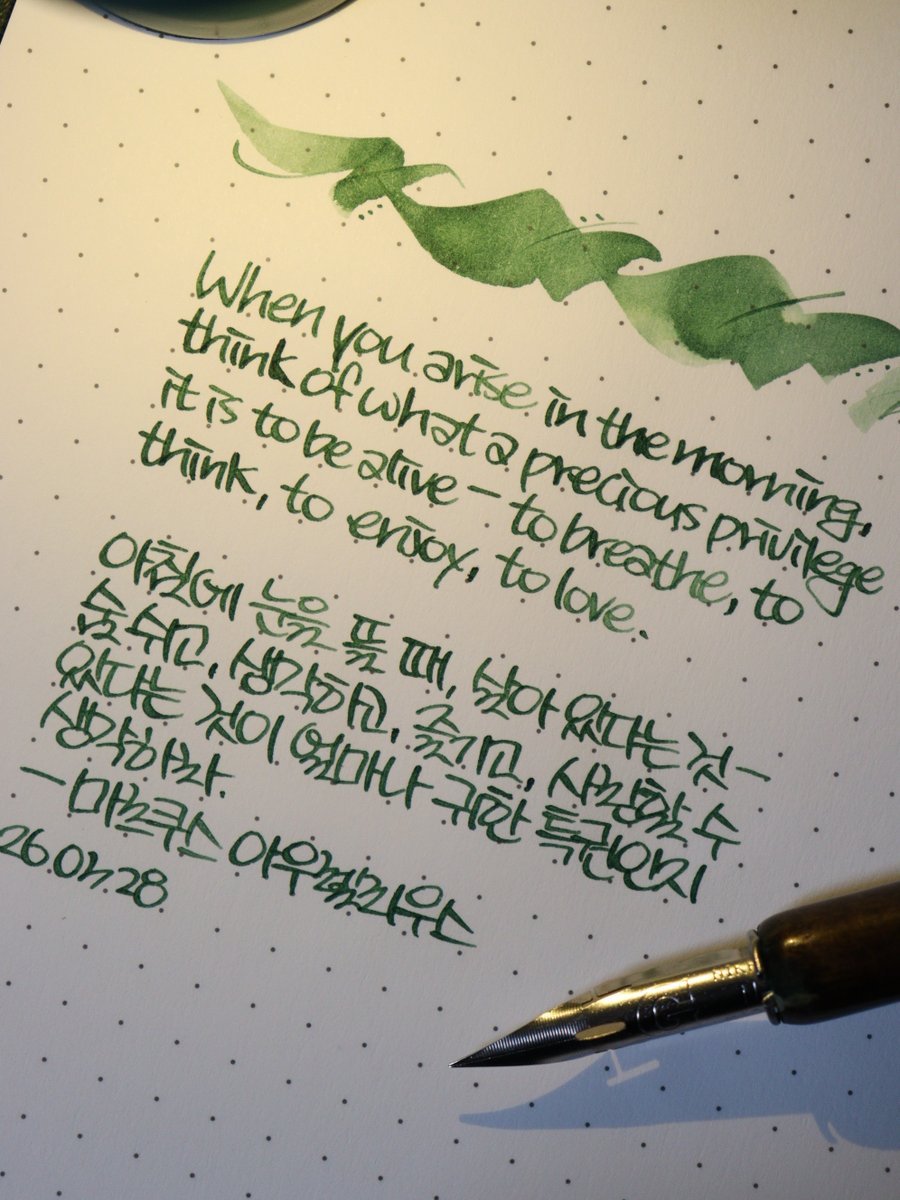 When you arise in the morning,
think of what a precious privilege
it is to be alive – to breathe, to
think, to enjoy, to love.
아침에 눈을 뜰 때, 살아 있다는 것 –
숨 쉬고, 생각하고, 즐기고, 사랑할 수
있다는 것이 얼마나 귀한 특권인지
생각하라.
– 마르쿠스 아우렐리우스
26.02.28